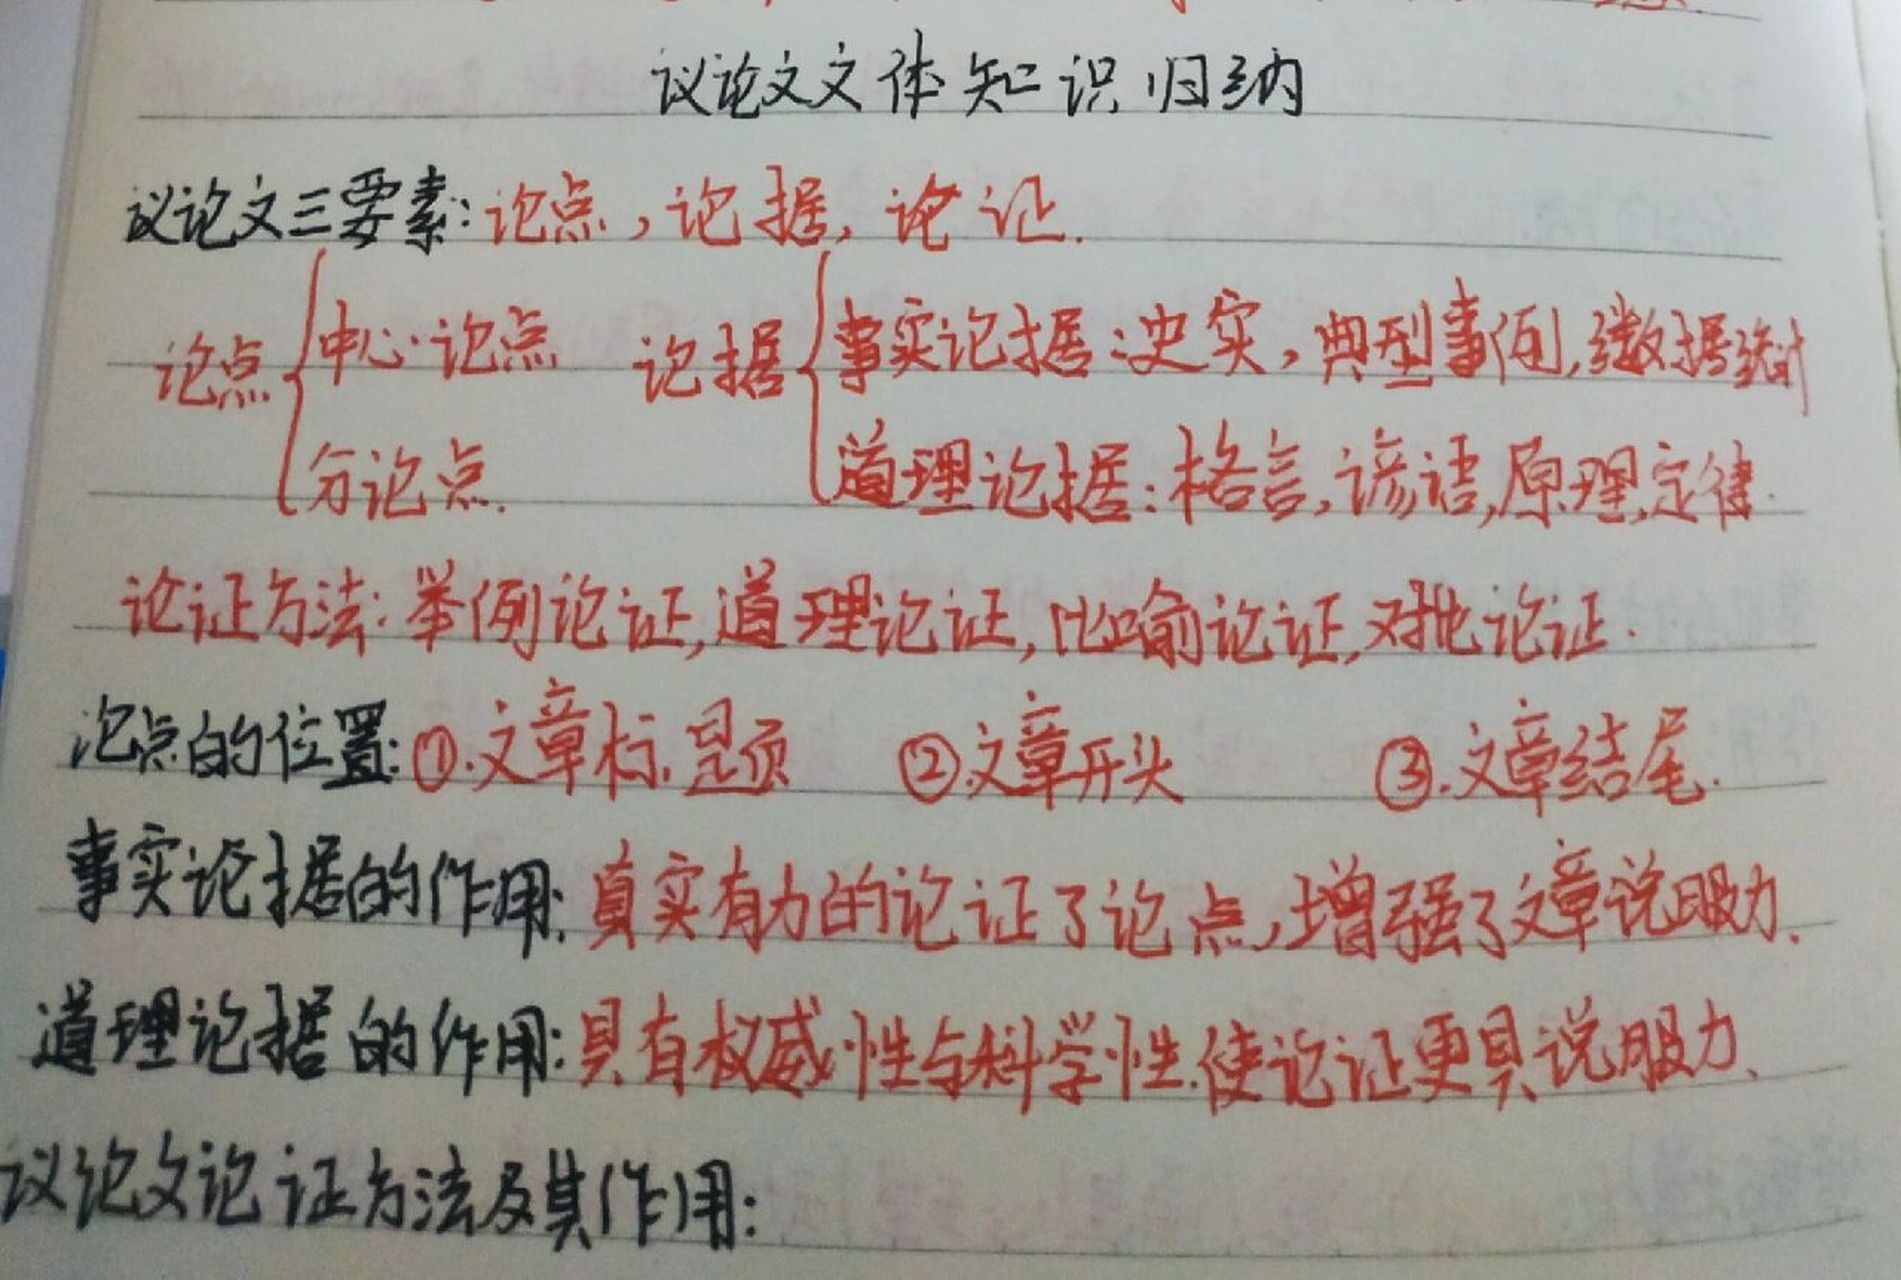 议论文文体知识归纳
议论文三要素:论点,论据,论证.
论点{中心论点 论据{事实论据:史实,典型事例,数据统计
分论点. 道理论据:格言,谚语,原理,定律.
论证方法:举例论证,道理论证,比喻论证,对比论证.
论点的位置:①.文章标题 ②.文章开头 ③.文章结尾.
事实论据的作用:真实有力的论证了论点,增强了文章说服力.
道理论据的作用:具有权威性与科学性.使论证更具说服力.
议论文论证方法及其作用: